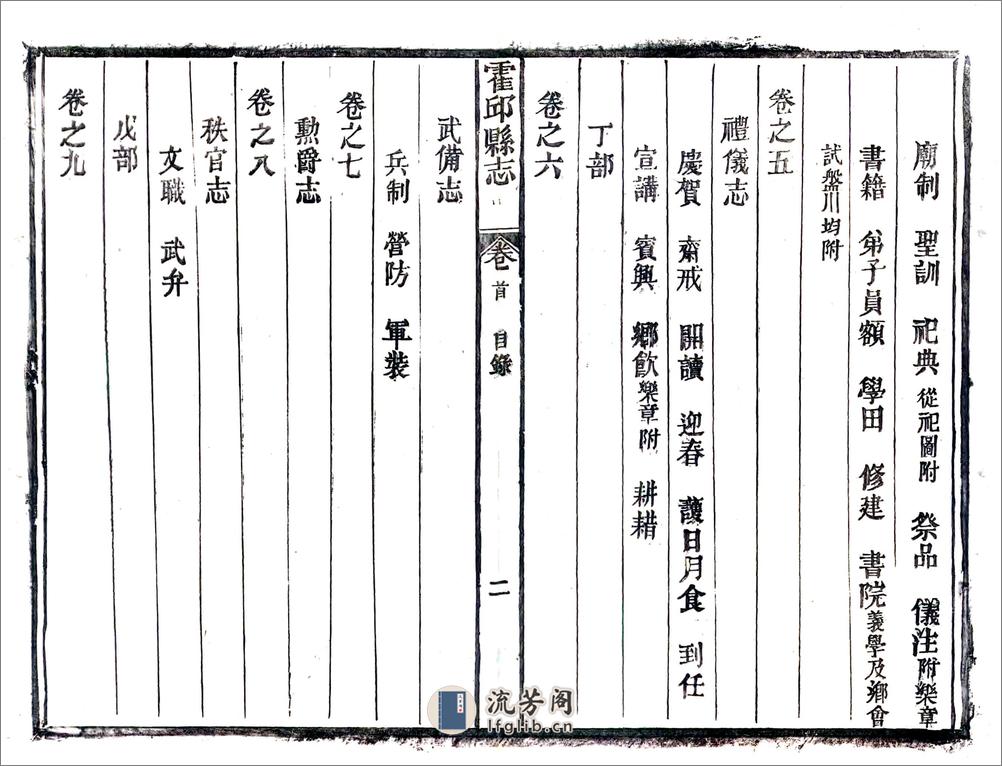 廟制　聖訓　祀典從祀圖附　祭品　儀注附樂章
書籍　弟子員額　學田　修建　書院義學及鄉會
試盤川均附
卷之五
禮儀志
慶賀　齋戒　開讀　迎春　護日月食　到任
宣講　賓興　鄉飲樂章附　耕耤
丁部
卷之六
霍邱縣志　卷首　目錄　二
武備志
兵制　營防　軍裝
卷之七
勲爵志
卷之八
秩官志
文職　武弁
戊部
卷之九
流芳阁
lfglib.cn